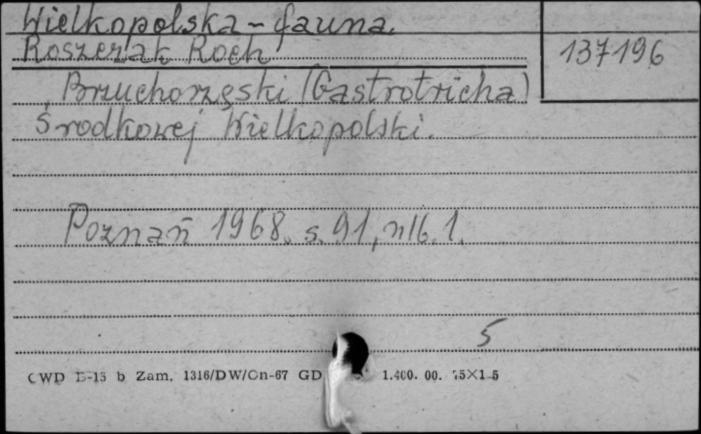 Wielkopolska - fauna.
Roszczak Roch
137196
Brzuchorzęski (Gastrotricha)
Środkowej Wielkopolski.
Poznań 1968. s. 91, nlb. 1.
5
CWD D-15 b Zam. 1316/DW/On-67 GD 1.400. 00.